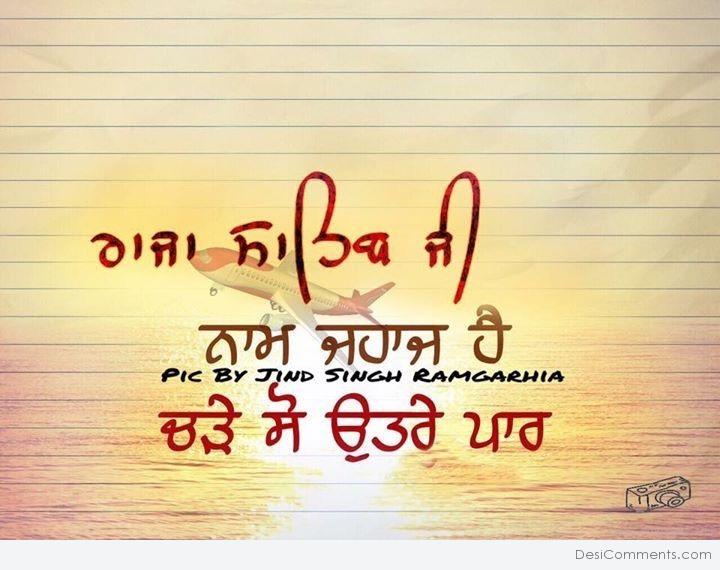 ਰਾਜਾ ਸਾਹਿਬ ਜੀ
ਨਾਮ ਜਹਾਜ ਹੈ
Pic By Jind Singh Ramgarhia
ਚੜੇ ਸੋ ਉਤਰੇ ਪਾਰ
DesiComments.com